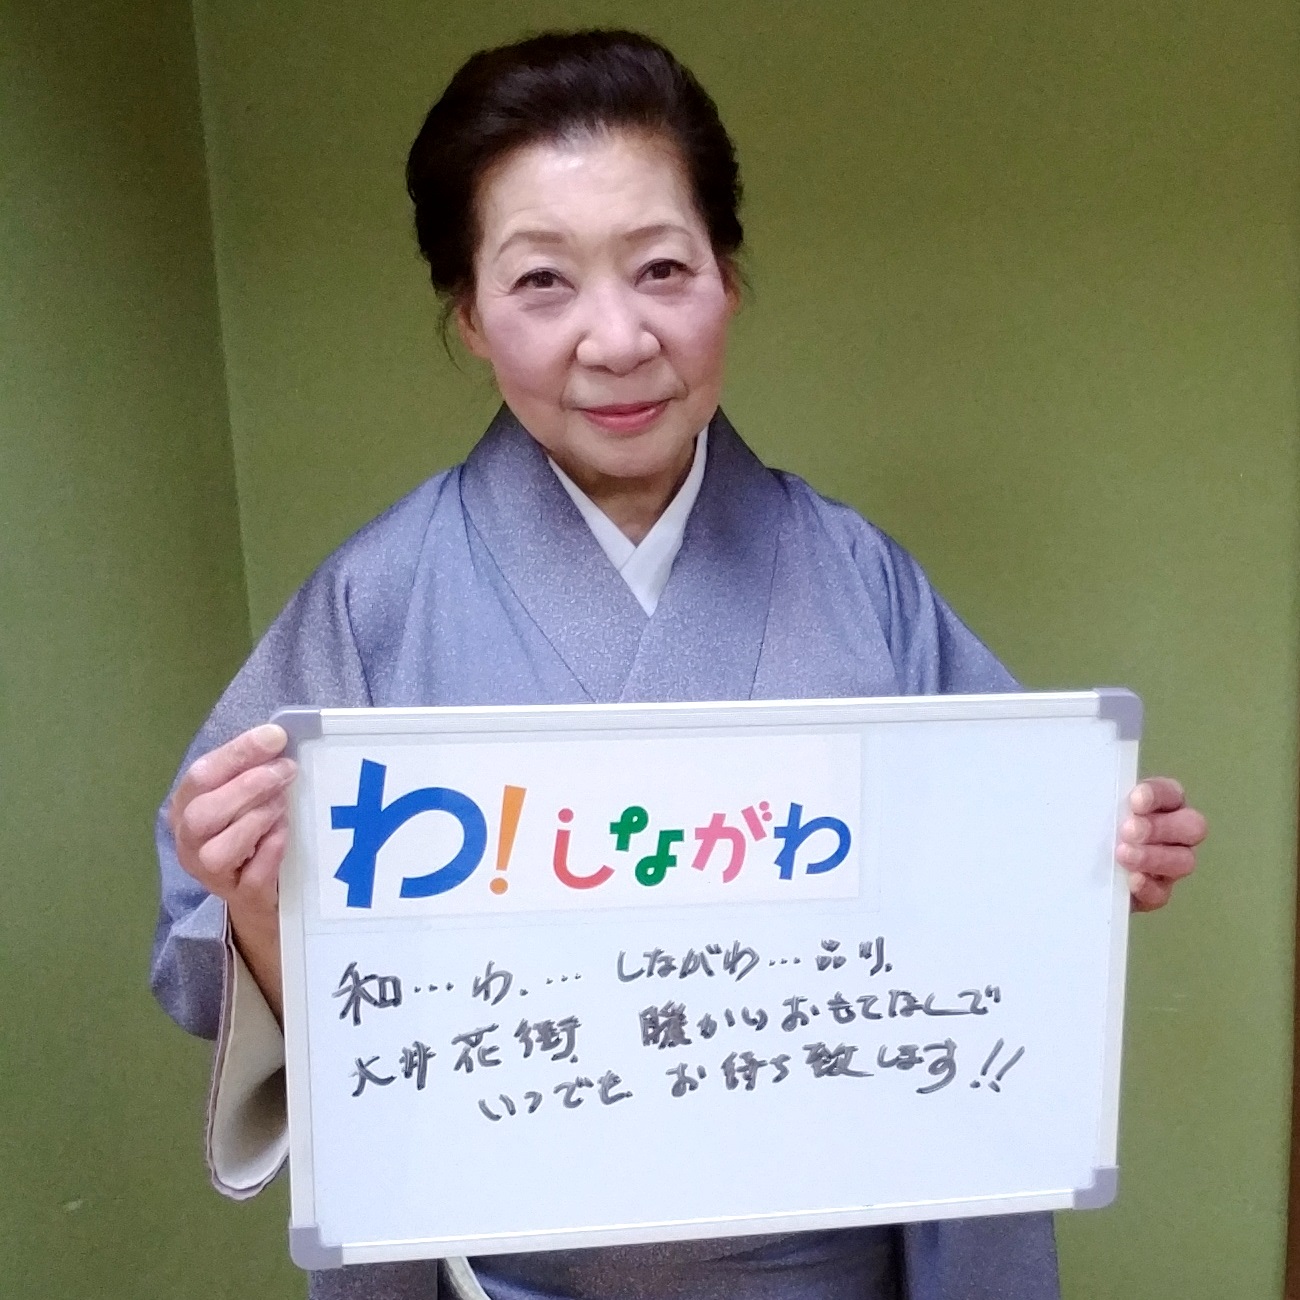 わ!しながわ
和…わ.…しながわ…品川.
大井花街 暖かいおもてなしで
いつでも お待ち致します!!